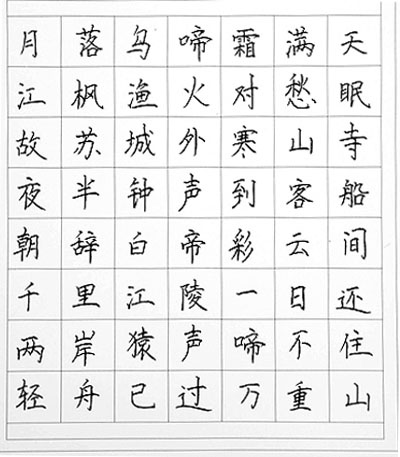 月落乌啼霜满天
江枫渔火对愁眠
故苏城外寒山寺
夜半钟声到客船
朝辞白帝彩云间
千里江陵一日还
两岸猿声啼不住
轻舟已过万重山